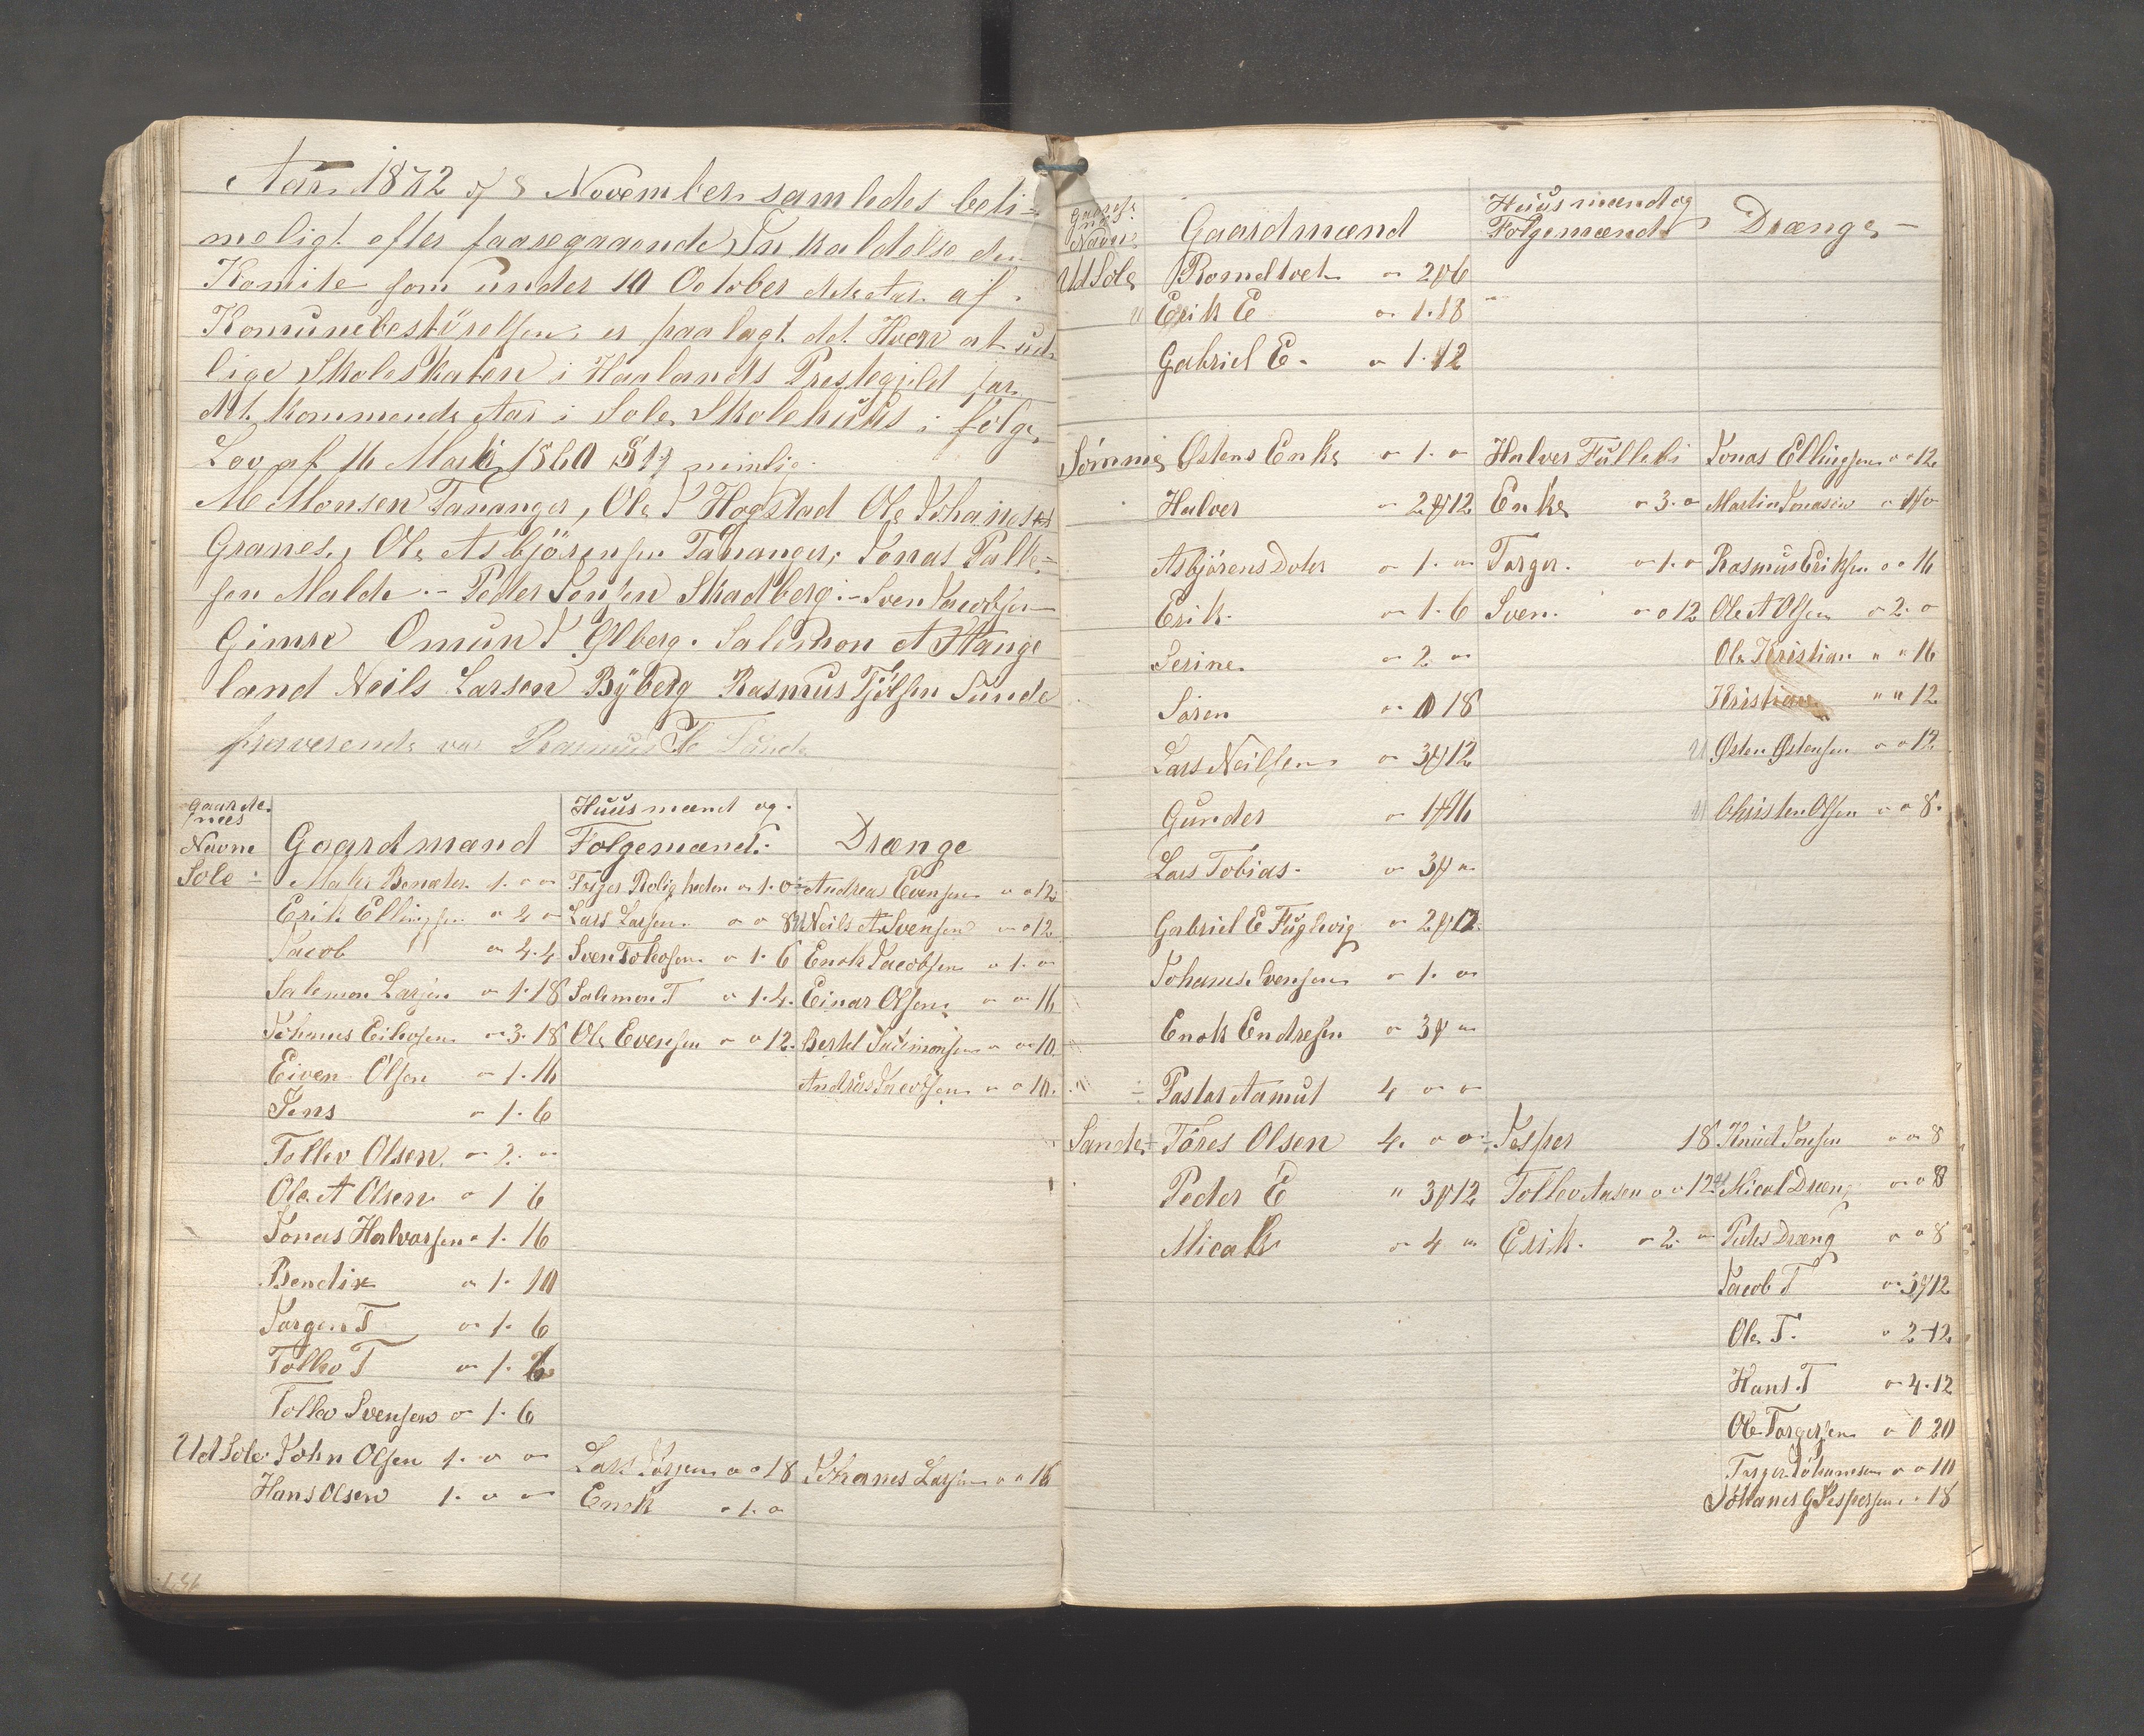 Aar 1872 d 8 November samledes beti-
meligt efter faaregaaende Inkaldelse den
Komite som under 10 October dete Aar af
Komunebestÿrelsen er paalagt det Hverv at ud
lige Skoleskaten i Haalands Prestegjeld for
det kommende Aar i Sole Skolehuus i følge
Lov af 16 Mai 1860 § 17 nemlig
M Monsen Tananger, Ole J Hogstad Ole Johaneses
Granes, Ole Asbjörensen Tananger, Jonas Palle-
sen Malde - Peder Jensen Skadberg - Sven Jacobsen
Gimre Omund J Ølberg. Salomon A Stange
land Neils Larsen Bÿberg Rasmus Tjölsen Sunde
fraverende var Rasmus T Sunde
Gaarde
nes
Navne Gaardmænd Huusmænd og Folgemænd Drænge
Sole Maler Benæter 1. " " Torjer Roligheden " 1. 0 Andreas Evensen " " 12
Erik Ellingsen " 2 " Lars Larsen " " 8 Neils A Svensen " " 12
Jacob " 4.4 Sven Tolevsen " 1. 6 Enok Jacobsen " 1. "
Salemon Larsen " 1.18 Salemon T " 1.4. Einar Olsen " " 16
Johanes Eilevsen " 3.18 Ole Evensen " " 12. Bertel Salimonsen " " 10
Eiven Olsen " 1.16 Andreas Jacobsen " " 10.
Jens " 1.6
Tollev Olsen " 2. "
Ole A Olsen " 1 6
Jonas Halvorsen " 1. 16
Bendix " 1. 10
Jorgen T " 1. 6
Tollev T " 1. 6
Tollev Svensen " 1. 6
Ud Sole John Olsen 1. " " Lars Jörgen " " 18 Johanes Larsen " " 16
Hans Olsen 1. " " Enok " 1. "
Gaards
nes
Navne Gaardmænd Huusmænd og Folgemænd Drænge
Ud Sole Romeltvet " 2 6
Erik E " 1.18
Gabriel E. " 1.12
Sömme Østens Enke " 1. " Halver Fulleli Jonas Ellingsen " " 12
Halver " 2 12 Enke " 3. " Martin Jonasen
Asbjörens Doter " 1. " Torger. " 1. " Rasmus Eriksen " " 16
Erik. " 1. 6 Sven. " " 12 Ole A Olsen " 2. "
Serine " 2 " Ole Kristian " " 16
Sören " 0 18 Kristian " " 12
Lars Neilsen " 3 12 Østen Østensen " " 12
Gunder " 1 16 Christen Olsen " " 8.
Lars Tobias. " 3 "
Gabriel E Fuglevig " 2 12
Johanes Svensen " 1. "
Enok Endresen " 3 "
Pastor Aamut 4 " "
Sande Töres Olsen 4. " " Jesper 18 Knud Jonsen " " 8
Peder E " 3 12 Tollev Aasen " " 12 Mical Dræng " " 8
Mical " 4 " Erik. " 2. " Peder Dræng " " 8
Jacob T " 3 12
Ole T. " 2 12
Hans T " 4.12
Ole Torgersen " 0 20
Torger Johanesen " " 10
Johanes G Jespersen " 18